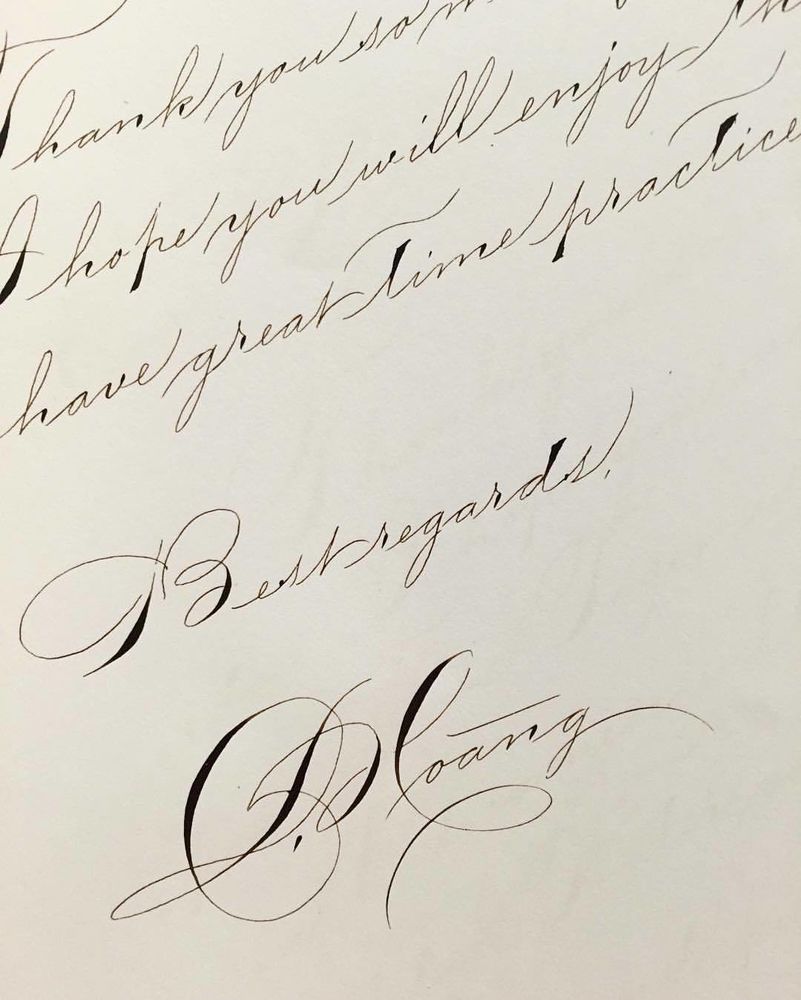 Thank you so
I hope you will enjoy
have great time practice
Best regards,
D. Hoang